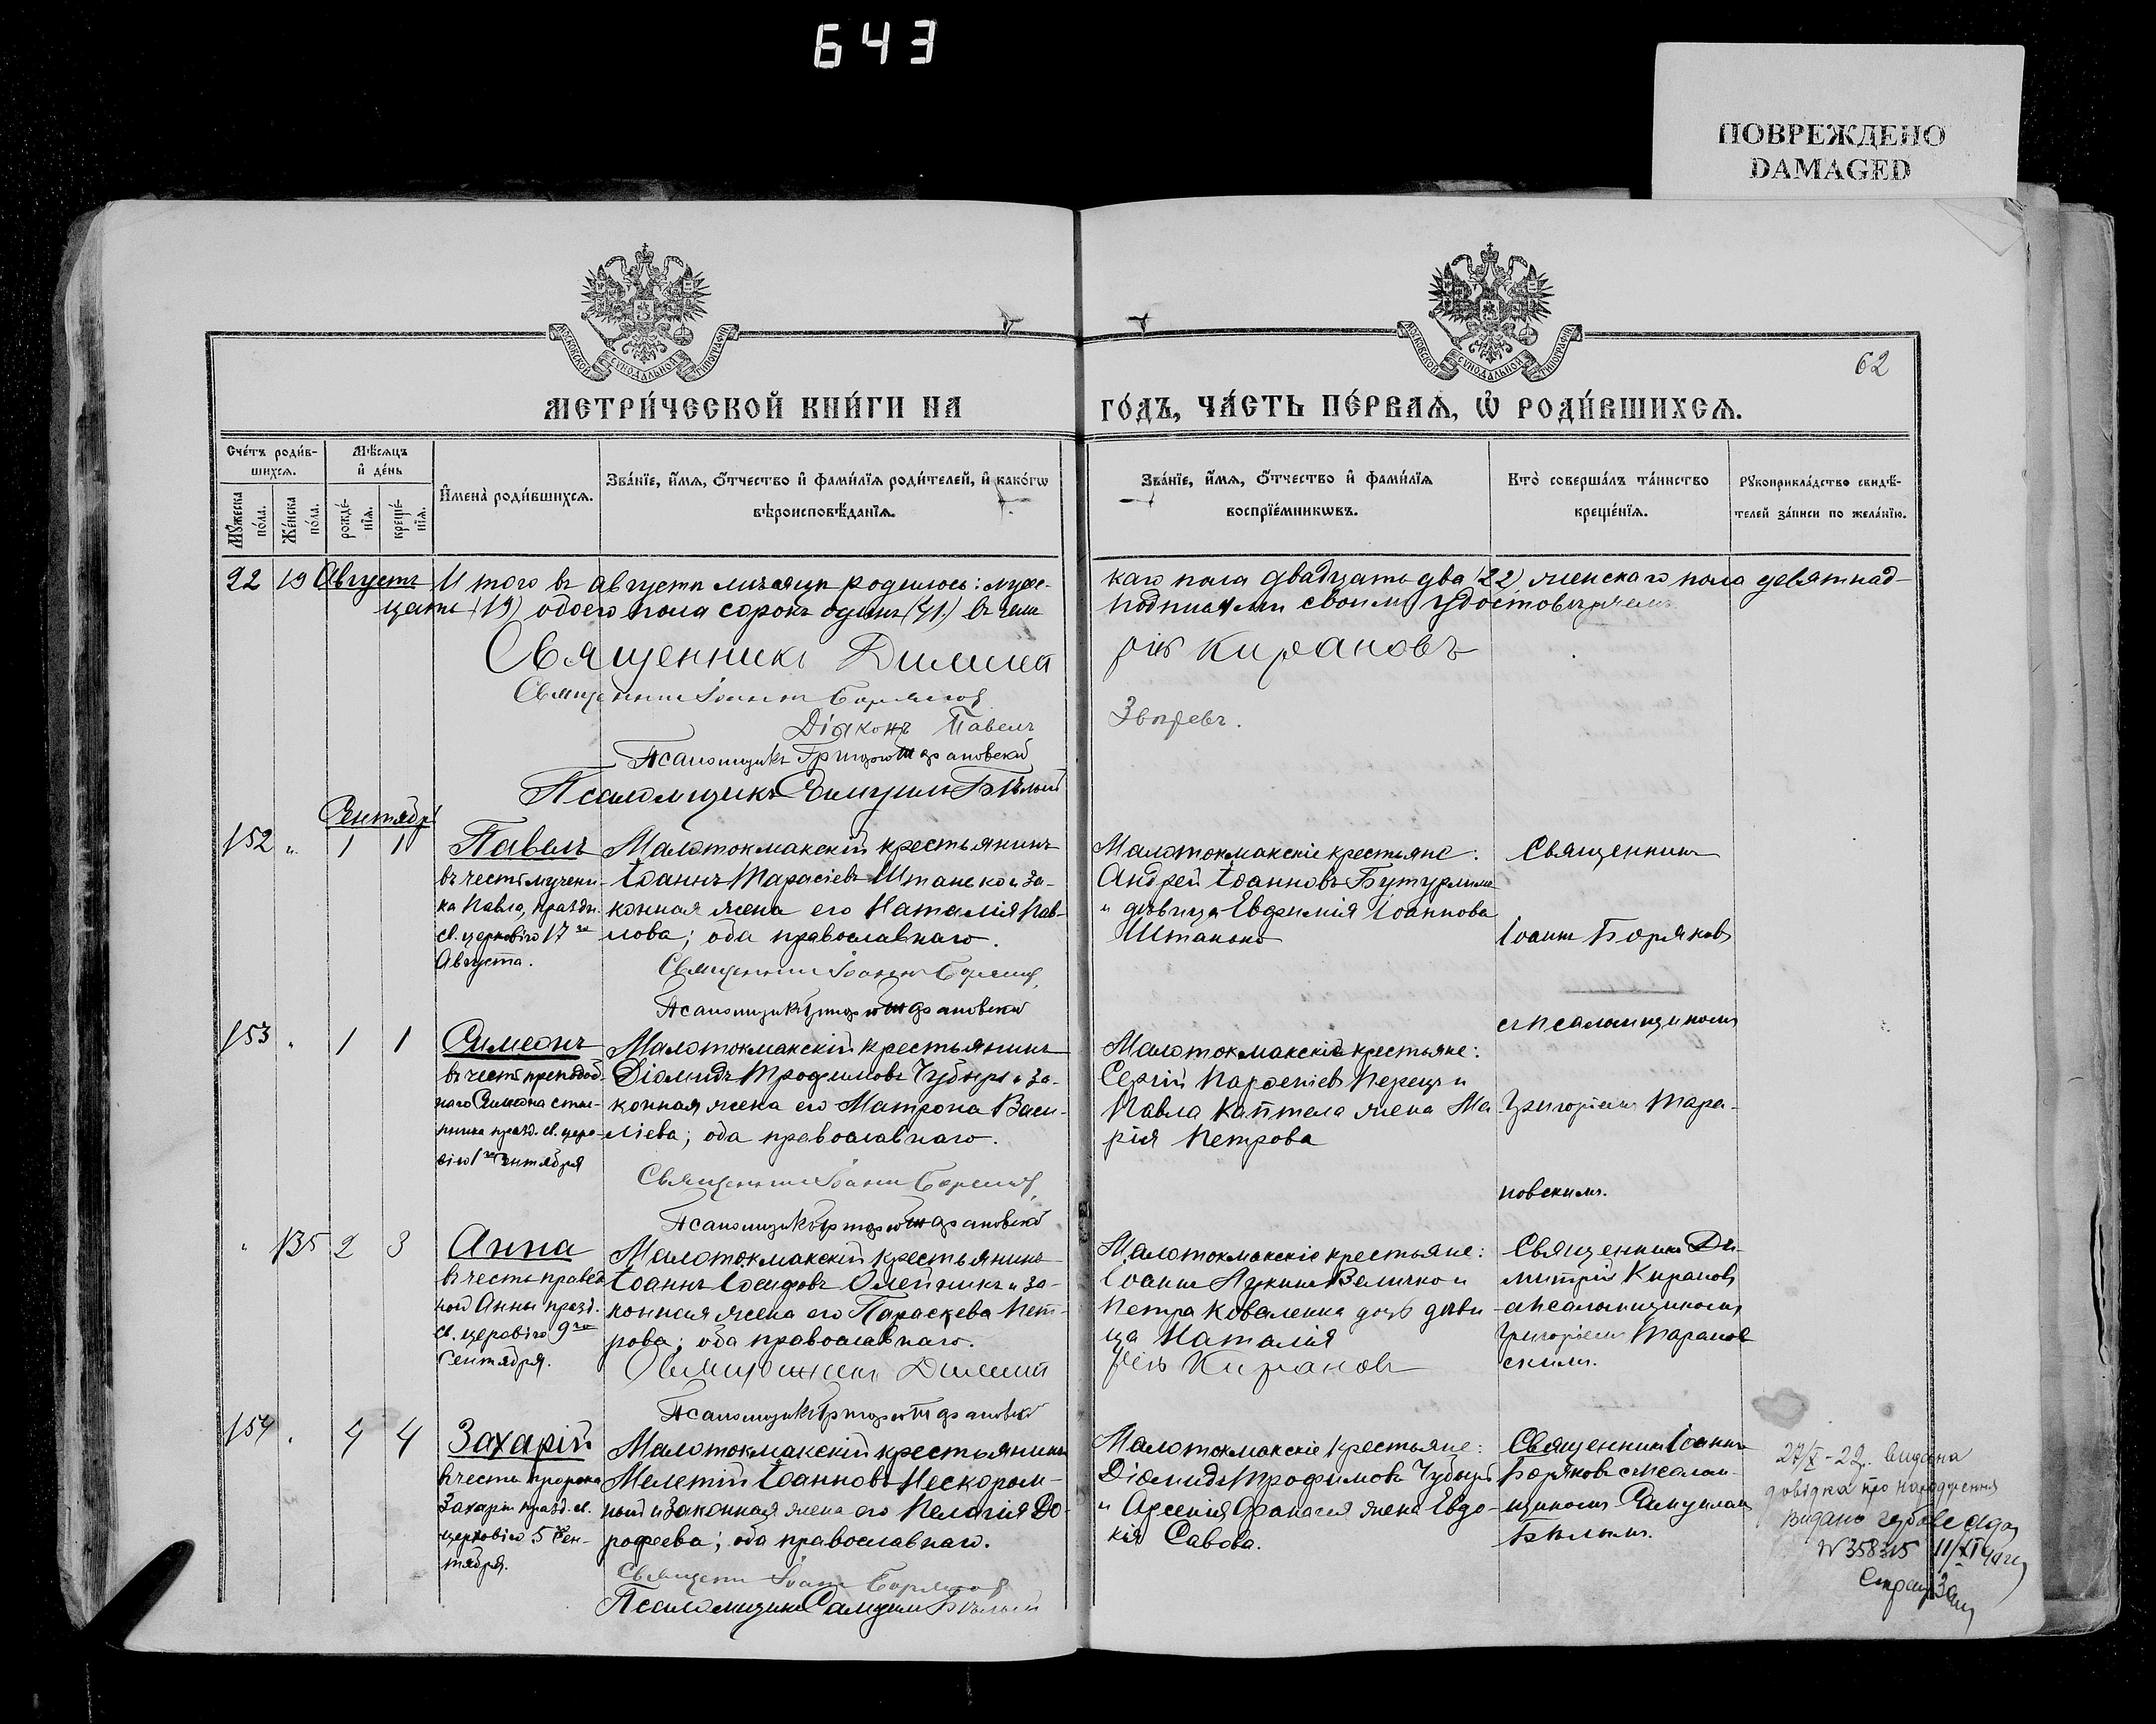 643
ПОВРЕЖДЕНО
DAMAGED
МОСКОВСКОЙ СѴНОДАЛЬНОЙ ТИПОГРАФІИ
МОСКОВСКОЙ СѴНОДАЛЬНОЙ ТИПОГРАФІИ
62
МЕТРИ́ЧЕСКОЙ КНИ́ГИ НА
ГО́ДЪ, ЧА́СТЬ ПЕ́РВАѦ, Ѽ РОДИ́ВШИХСѦ.
Сче́тъ роди́в-
шихсѧ.
Мѣ́сѧцъ
и҆ де́нь
Мꙋ́жеска по́ла.
Же́нска по́ла.
рожде́-
нїѧ.
креще́-
нїѧ.
И҆мена̀ роди́вшихсѧ.
Зва́нїе, и҆́мѧ, ѻ҆́тчество и҆ фами́лїѧ роди́телей, и҆ како́гѡ
вѣроисповѣ́данїѧ.
Зва́нїе, и҆́мѧ, ѻ҆́тчество и҆ фами́лїѧ
воспрїе́мникѡвъ.
Кто̀ соверша́лъ та́инство
креще́нїѧ.
Рꙋкоприкла́дство свидѣ́-
телей за́писи по жела́нїю.
22 19 Августъ Итого въ августѣ мѣсяцѣ родилось: муже-
скаго пола двадцать два (22) женскаго пола девятнад-
цать (19) обоего пола сорокъ одинъ (41) въ чемъ
подписями своими удостовѣряемъ
Священникъ Димит
рій Кирановъ
Священникъ Іоаннъ Боряковъ
Діаконъ Павелъ
Звѣревъ.
Псаломщикъ Григорій Тарановскій
Псаломщикъ Самуилъ Бѣлый
Сентябрь
152 " 1 1 Павелъ
въ честь мучени-
ка Павла, праздн.
св. церковію 17го
Августа.
Малотокмакскій крестьянинъ
Іоаннъ Тарасіевъ Штанько и за-
конная жена его Наталія Пав-
лова; оба православнаго.
Священникъ Іоаннъ Боряковъ
Псаломщикъ Григорій Тарановскій
Малотокмакскіе крестьяне:
Андрей Іоанновъ Бутурлимъ
и дѣвица Евфимія Іоаннова
Штанько
Священникъ
Іоаннъ Боряковъ
съ псаломщикомъ
153 " 1 1 Симеонъ
въ честь преподоб-
наго Симеона столп-
ника празд. св. церко-
вію 1го Сентября
Малотокмакскій крестьянинъ
Діомидъ Трофимовъ Чубырь и за-
конная жена его Матрона Васи-
ліева; оба православнаго.
Священникъ Іоаннъ Боряковъ
Псаломщикъ Григорій Тарановскій
Малотокмакскіе крестьяне:
Сергій Парѳеніевъ Перецъ и
Павла Каптела жена Ма-
рія Петрова
Григоріемъ Тара-
новскимъ.
" 135 2 3 Анна
въ честь правед-
ной Анны празд.
св. церковію 9го
Сентября.
Малотокмакскій крестьянинъ
Іоаннъ Іосифовъ Олейникъ и за-
конная жена его Параскева Пет-
рова; оба православнаго.
Священникъ Димит
рій Кирановъ
Псаломщикъ Григорій Тарановскій
Малотокмакскіе крестьяне:
Іоаннъ Лукинъ Величко и
Петра Коваленка дочь дѣви-
ца Наталія
Священникъ Ди-
митрій Кирановъ
съ псаломщикомъ
Григоріемъ Тарановс-
скимъ.
154 " 4 4 Захарій
въ честь пророка
Захаріи празд. св.
церковію 5 Сен-
тября.
Малотокмакскій крестьянинъ
Мелетій Іоанновъ Нескором-
ный и законная жена его Пелагія До-
рофеева; оба православнаго.
Священникъ Іоаннъ Боряковъ
Псаломщикъ Самуилъ Бѣлый
Малотокмакскіе крестьяне:
Діомидъ Трофимовъ Чубырь
и Арсенія жена Евдо-
кія Савова.
Священникъ Іоаннъ
Боряковъ съ псалом-
щикомъ Самуиломъ
Бѣлымъ.
27/X - 22. видана
довідка про народження
видано
№ 358315 11/XI